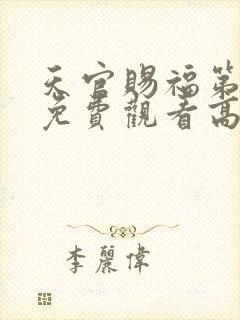 天官賜福第
免費觀看高
李麗偉